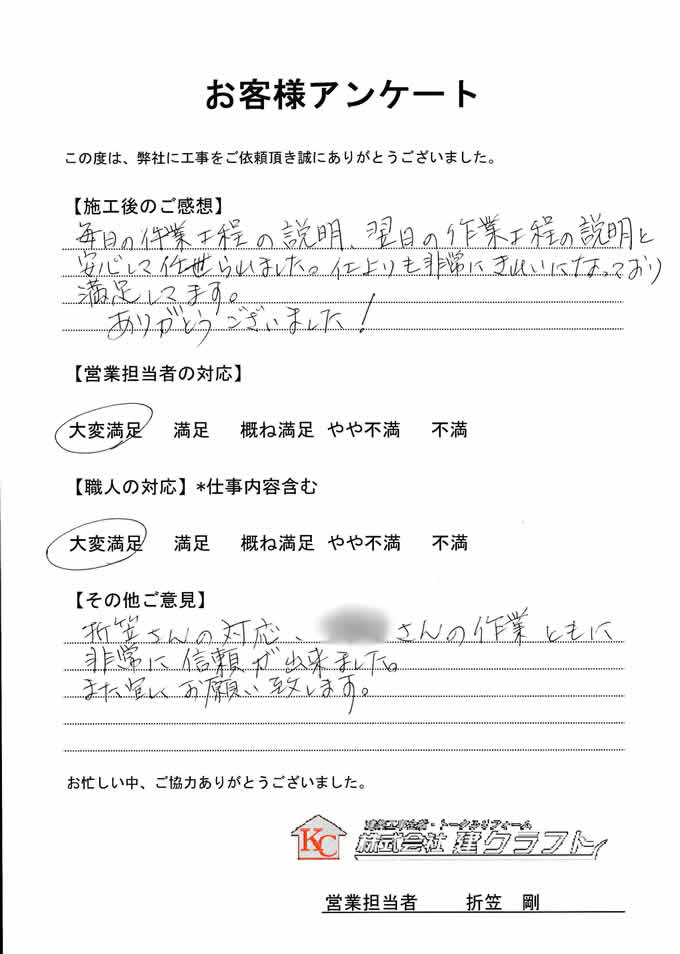 お客様アンケート
この度は、弊社に工事をご依頼頂き誠にありがとうございました。
【施工後のご感想】
毎日の作業工程の説明、翌日の作業工程の説明と
安心して任せられました。仕上りも非常にきれいになっており
満足してます。
ありがとうございました!
【営業担当者の対応】
大変満足 満足 概ね満足 やや不満 不満
【職人の対応】*仕事内容含む
大変満足 満足 概ね満足 やや不満 不満
【その他ご意見】
折笠さんの対応、 さんの作業ともに
非常に信頼が出来ました。
また宜しくお願い致します。
お忙しい中、ご協力ありがとうございました。
KC
株式会社 建クラフト
営業担当者 折笠 剛